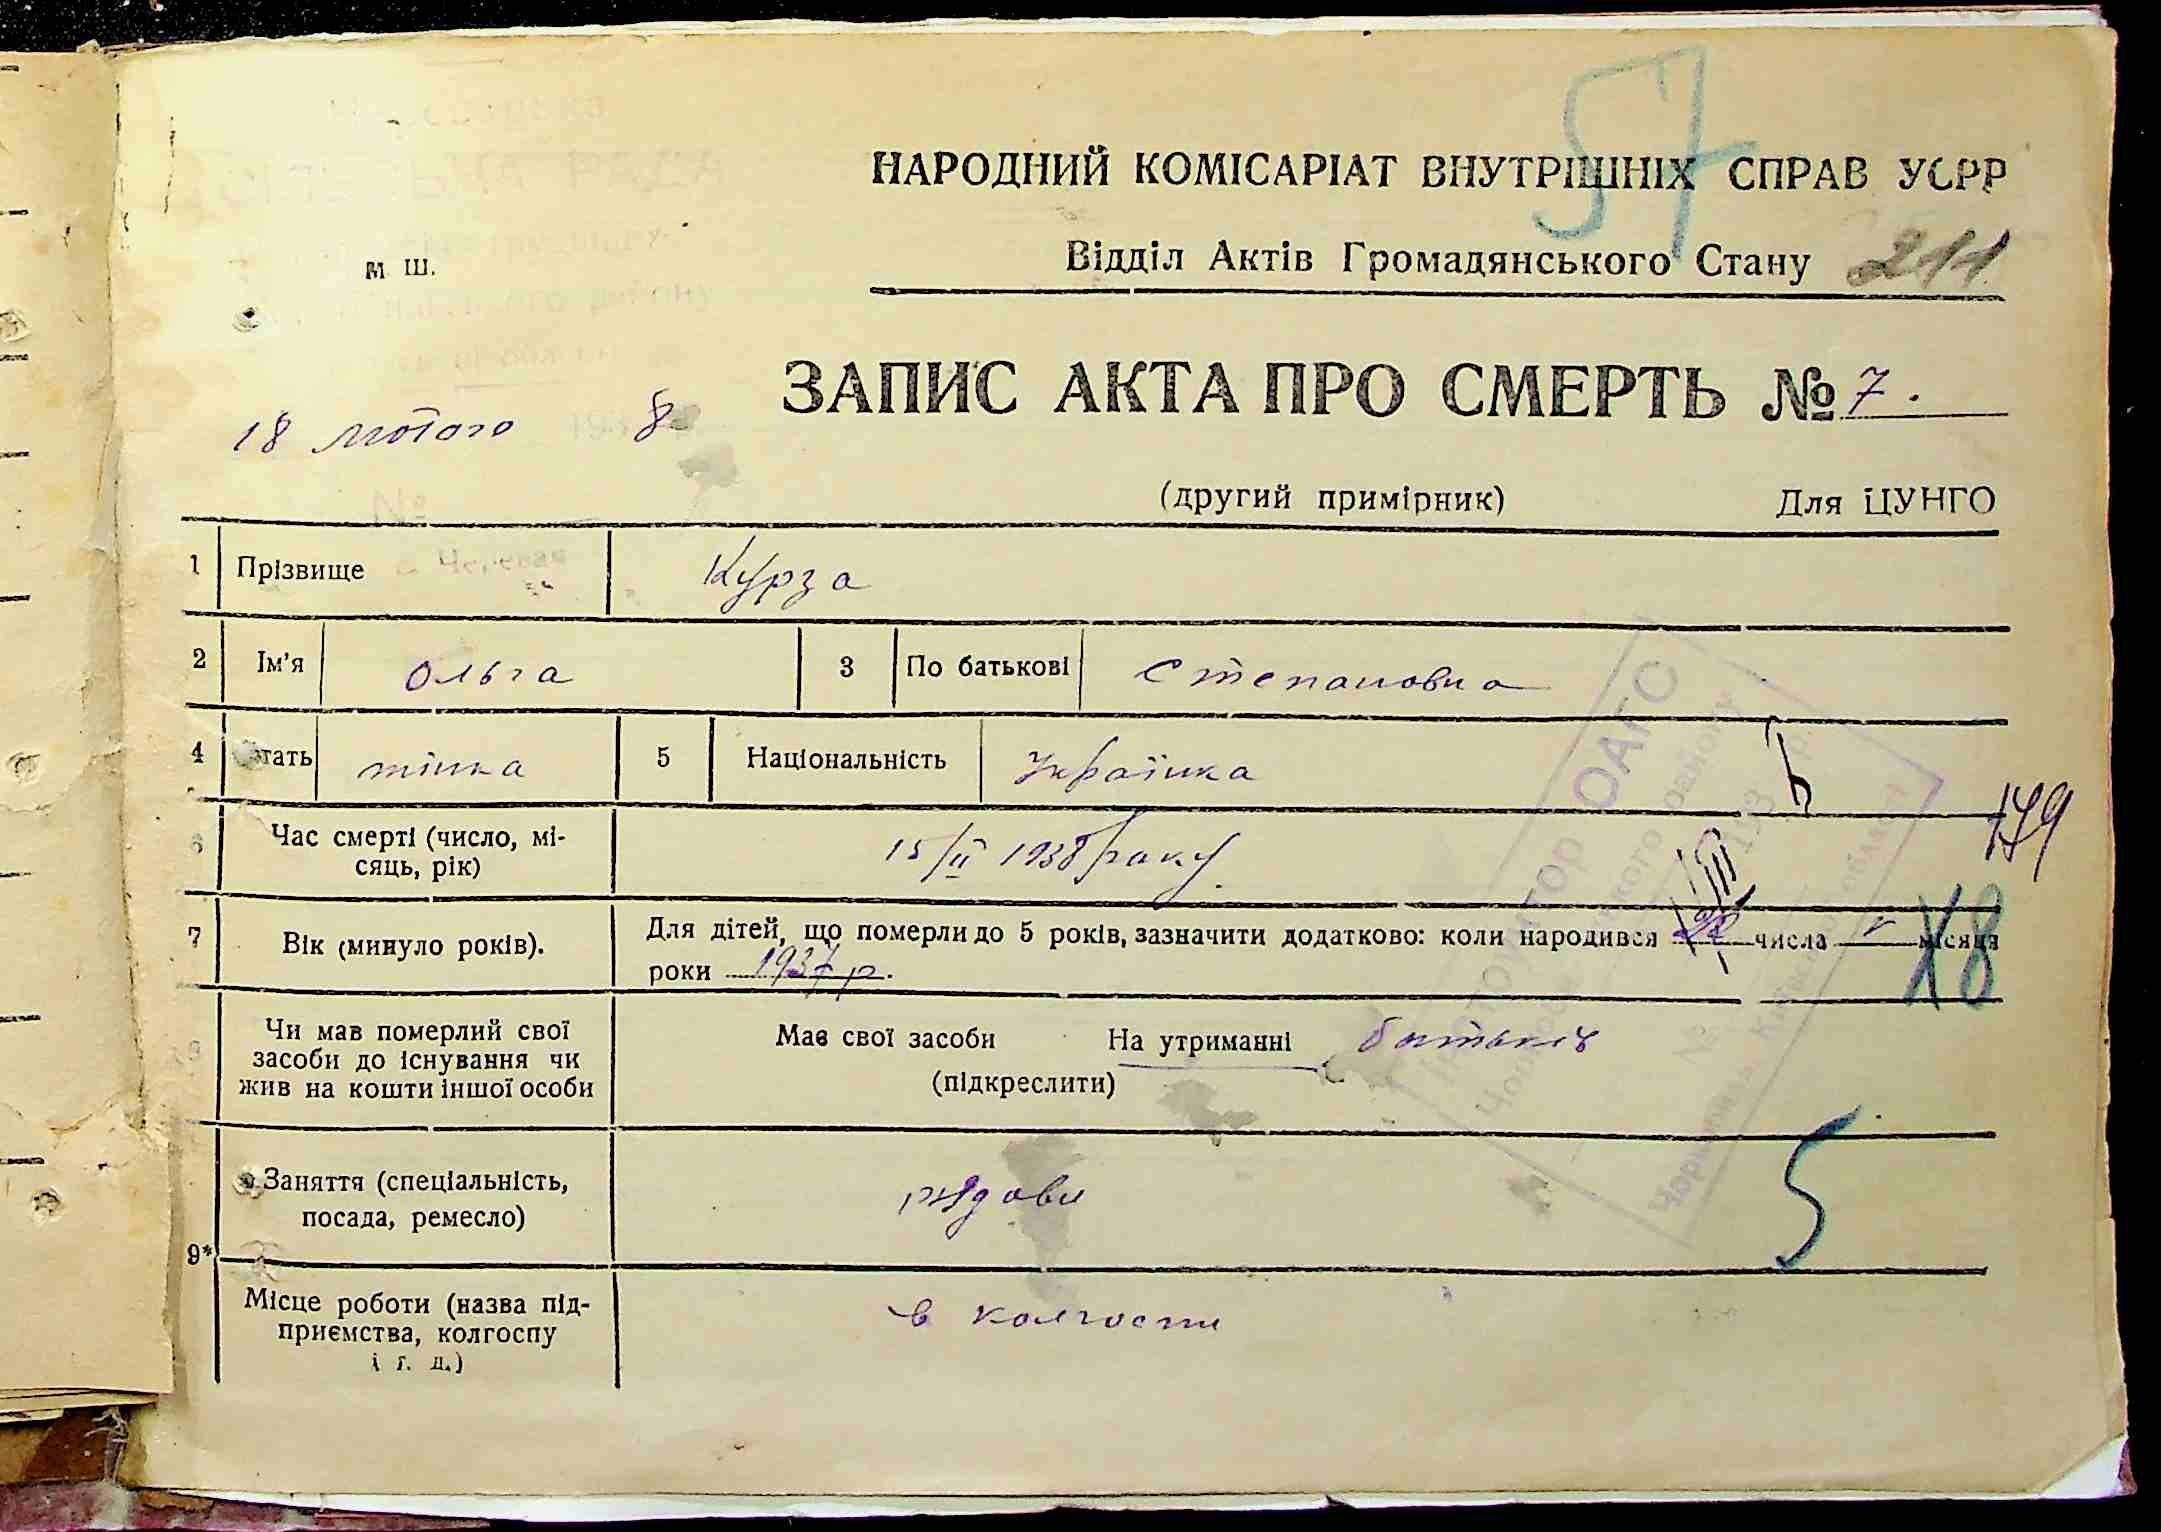 57
НАРОДНИЙ КОМІСАРІАТ ВНУТРІШНІХ СПРАВ УСРР
Відділ Актів Громадянського Стану 211
м ш.
ЗАПИС АКТА ПРО СМЕРТЬ № 7.
18 лютого 193 8
(другий примірник) Для ЦУНГО
№
с. Черевач
1 Прізвище Курза
2 Ім'я Ольга 3 По батькові Степановна
4 Стать жінка 5 Національність Українка
6 Час смерті (число, мі-
сяць, рік) 15/II 1938 року.
179
7 Вік (минуло років). Для дітей, що померли до 5 років, зазначити додатково: коли народився числа V місяця
роки 1937 р.
Х8
Чи мав померлий свої
засоби до існування чи
жив на кошти іншої особи
Має свої засоби На утриманні батьків
(підкреслити)
Заняття (спеціальність,
посада, ремесло) рядови
5
9*
Місце роботи (назва під-
приємства, колгоспу
і г. д.) в колгоспи